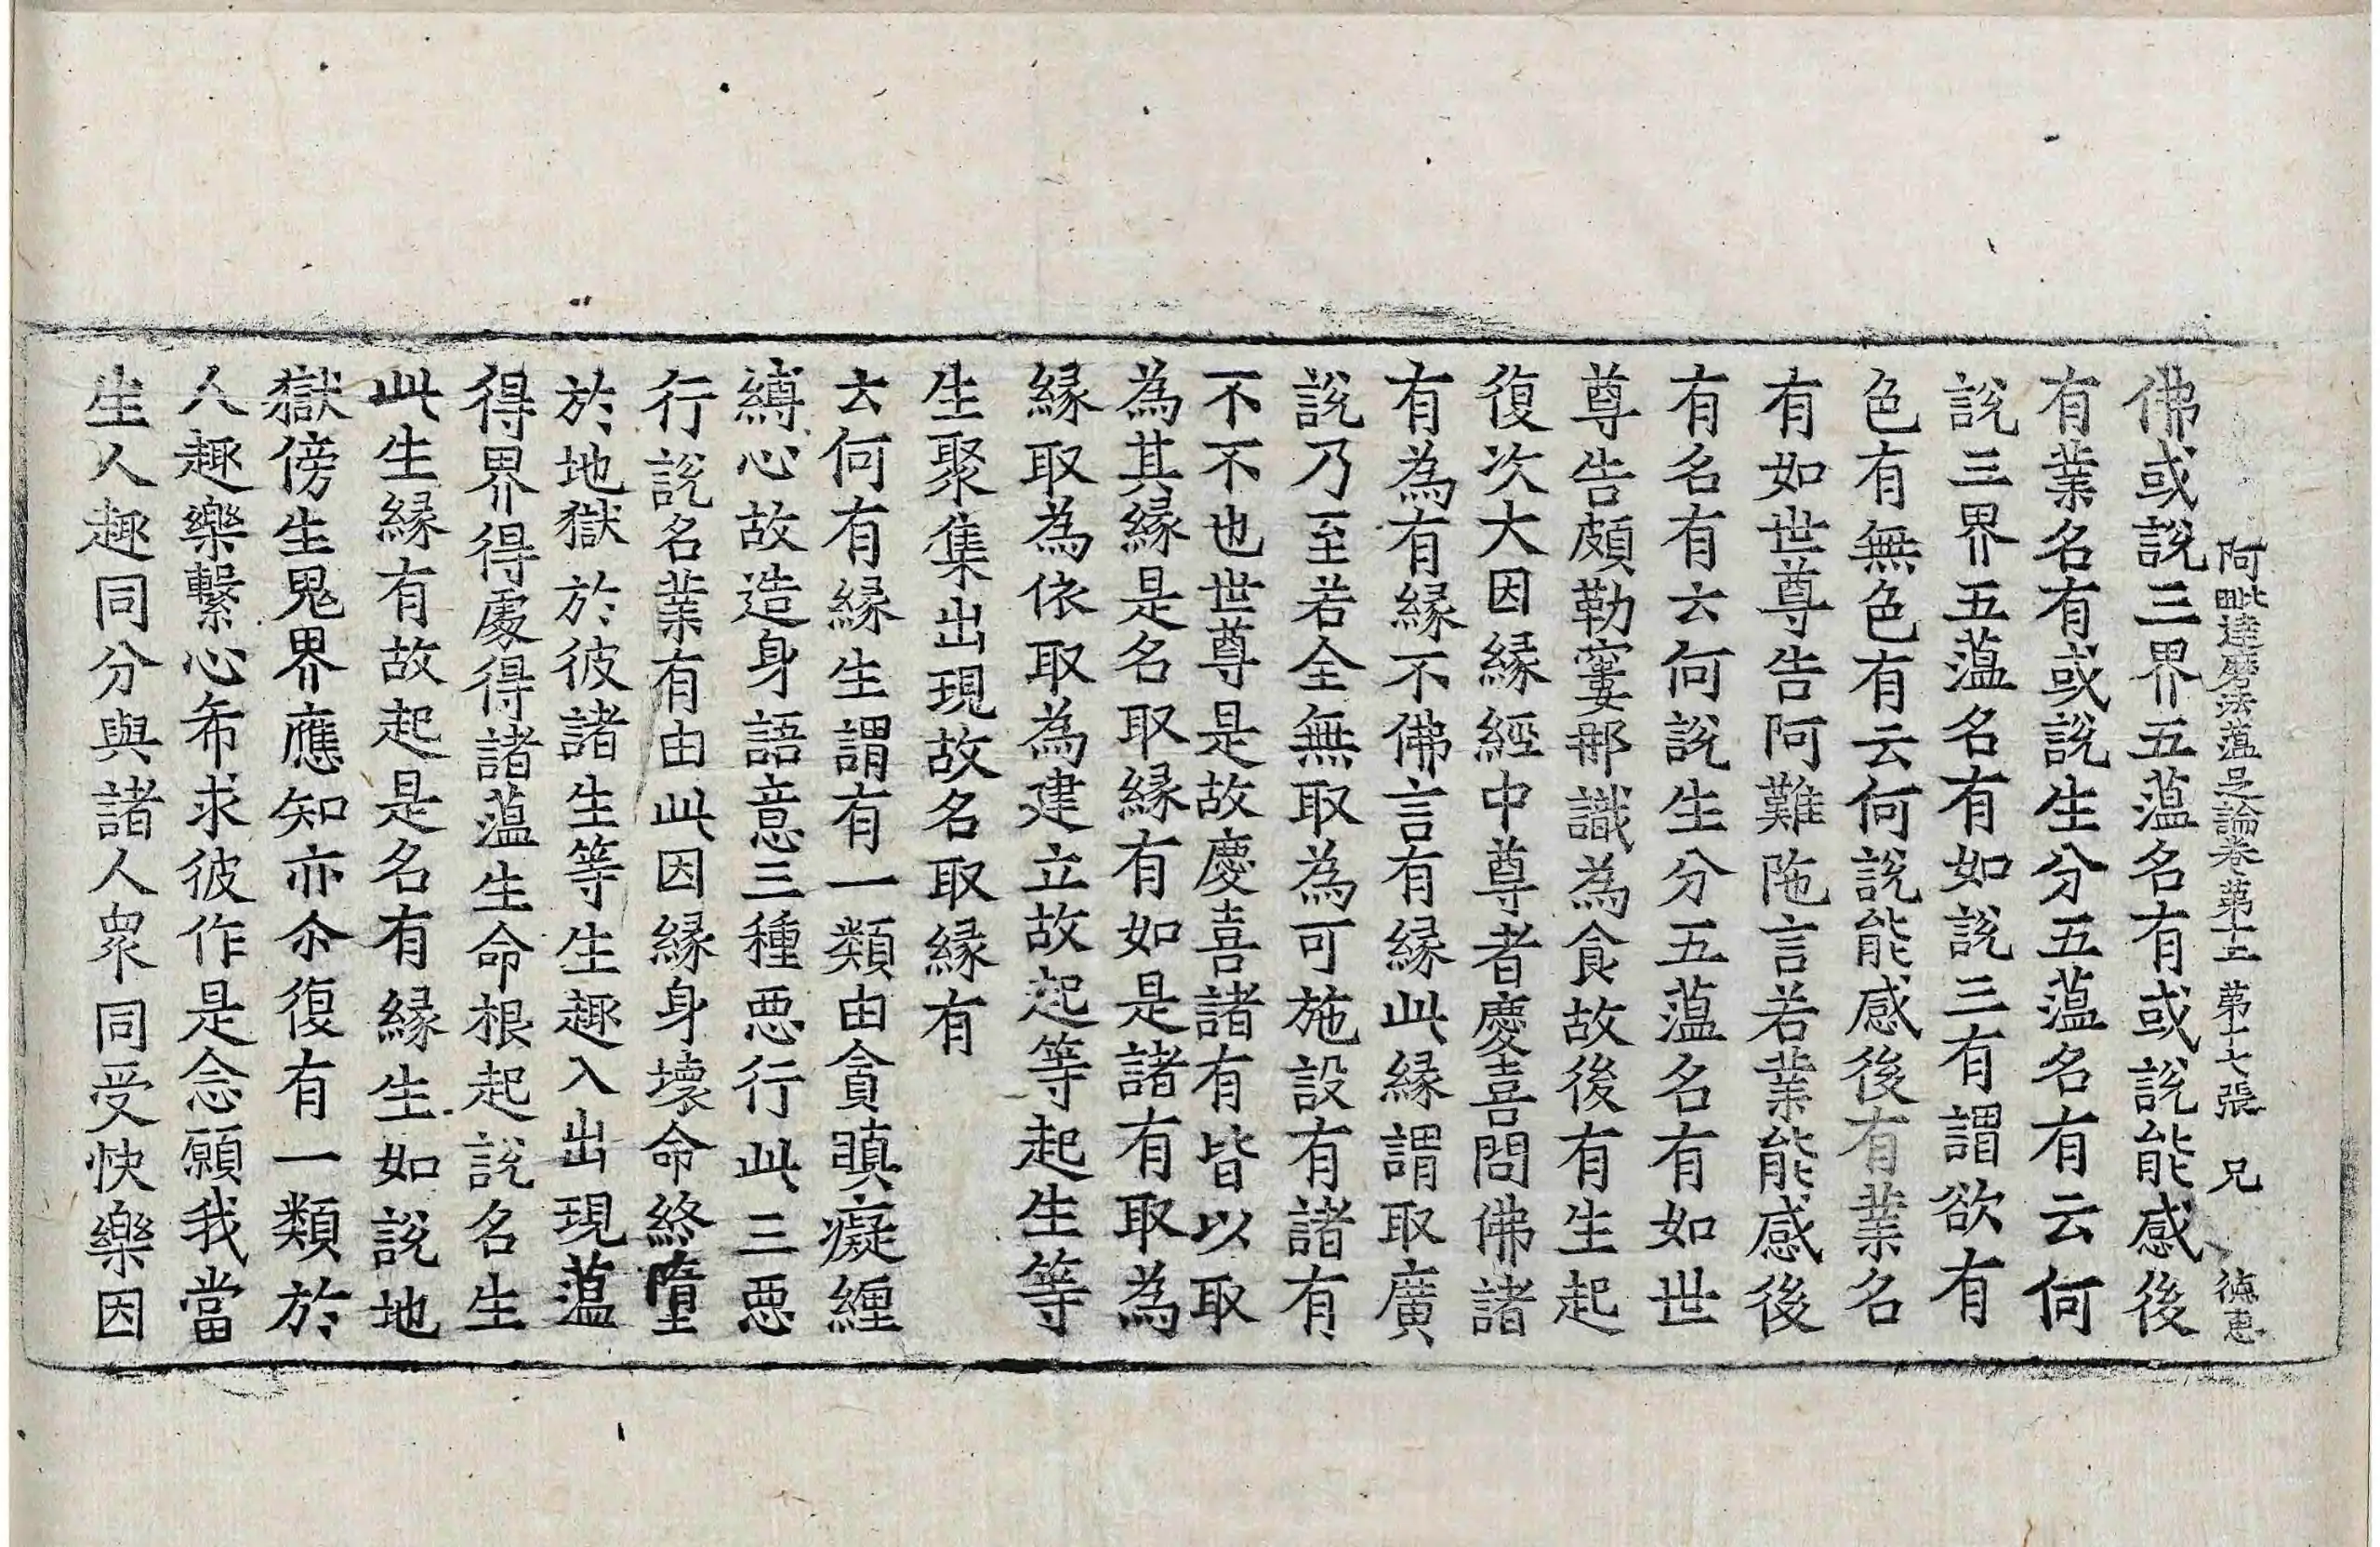 阿毗達磨法蘊足論卷第十二 第十七張 兄 德惠
佛或說三界五薀名有或說能感後
有業名有或說生分五薀名有云何
說三界五薀名有如說三有謂欲有
色有無色有云何說能感後有業名
有如世尊告阿難陁言若業能感後
有名有云何說生分五薀名有如世
尊告頗勒窶那識為食故後有生起
復次大因緣經中尊者慶喜問佛諸
有為有緣不佛言有緣此緣謂取廣
說乃至若全無取為可施設有諸有
不不也世尊是故慶喜諸有皆以取
為其緣是名取緣有如是諸有取為
緣取為依取為建立故起等起生等
生聚集出現故名取緣有
云何有緣生謂有一類由貪瞋癡纒
縛心故造身語意三種惡行此三惡
行說名業有由此因緣身壞命終墮
於地獄於彼諸生等生趣入出現薀
得界得處得諸薀生命根起說名生
此生緣有故起是名有緣生如說地
獄傍生鬼界應知亦尒復有一類於
人趣樂繫心希求彼作是念願我當
生人趣同分與諸人衆同受快樂因